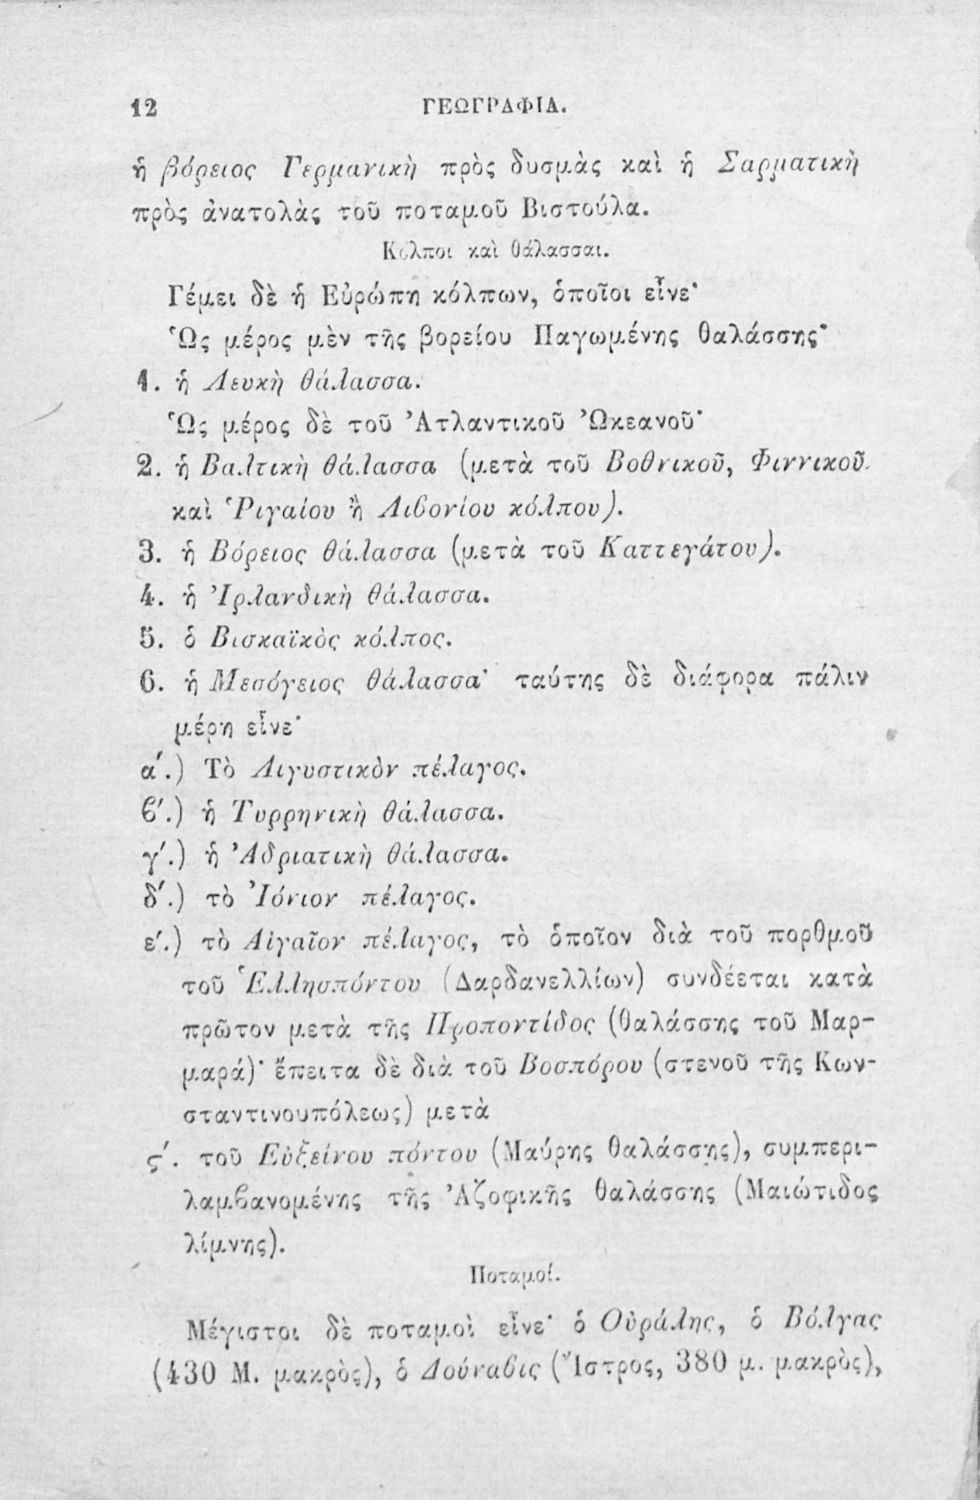 12 ΓΕΩΓΡΑΦΙΑ.
ἡ βόρειος Γερμανικὴ πρὸς δυσμὰς καὶ ἡ Σαρματικὴ
πρὸς ἀνατολὰς τοῦ ποταμοῦ Βιστούλα.
Κόλποι καὶ θάλασσαι.
Γέμει δὲ ἡ Εὐρώπη κόλπων, ὁποῖοι εἶνε·
Ὡς μέρος μὲν τῆς βορείου Παγωμένης θαλάσσης·
1. ἡ Λευκὴ θάλασσα.
Ὡς μέρος δὲ τοῦ Ἀτλαντικοῦ Ὠκεανοῦ·
2. ἡ Βαλτικὴ θάλασσα (μετὰ τοῦ Βοθνικοῦ, Φιννικοῦ
καὶ Ῥιγαίου ἢ Λιϐονίου κόλπου).
3. ἡ Βόρειος θάλασσα (μετὰ τοῦ Καττεγάτου).
4. ἡ Ἰρλανδικὴ θάλασσα.
5. ὁ Βισκαϊκὸς κόλπος.
6. ἡ Μεσόγειος θάλασσα· ταύτης δὲ διάφορα πάλιν
μέρη εἶνε·
α΄.) Τὸ Λιγυστικὸν πέλαγος.
ϐ΄.) ἡ Τυρρηνικὴ θάλασσα.
γ΄.) ἡ Ἀδριατικὴ θάλασσα.
δ΄.) τὸ Ἰόνιον πέλαγος.
ε΄.) τὸ Αἰγαῖον πέλαγος, τὸ ὁποῖον διὰ τοῦ πορθμοῦ
τοῦ Ἑλλησπόντου (Δαρδανελλίων) συνδέεται κατὰ
πρῶτον μετὰ τῆς Προποντίδος (θαλάσσης τοῦ Μαρ-
μαρά)· ἔπειτα δὲ διὰ τοῦ Βοσπόρου (στενοῦ τῆς Κων-
σταντινουπόλεως) μετὰ
ς΄. τοῦ Εὐξείνου πόντου (Μαύρης θαλάσσης), συμπερι-
λαμϐανομένης τῆς Ἀζοφικῆς θαλάσσης (Μαιώτιδος
λίμνης).
Ποταμοί.
Μέγιστοι δὲ ποταμοὶ εἶνε· ὁ Οὐράλης, ὁ Βόλγας
(430 Μ. μακρὸς), ὁ Δούναϐις (Ἴστρος, 380 μ. μακρὸς),